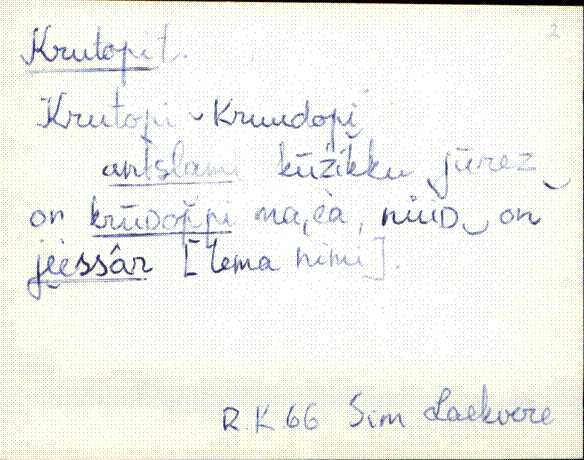 2
Krutopit.
Krutopi ~ Kruudopi
antslami kūžikku jūrez
on krūDoppi mäčà, nüüD on
jeèssâr [tema nimi].
R.K. 66 Sim Laekvere